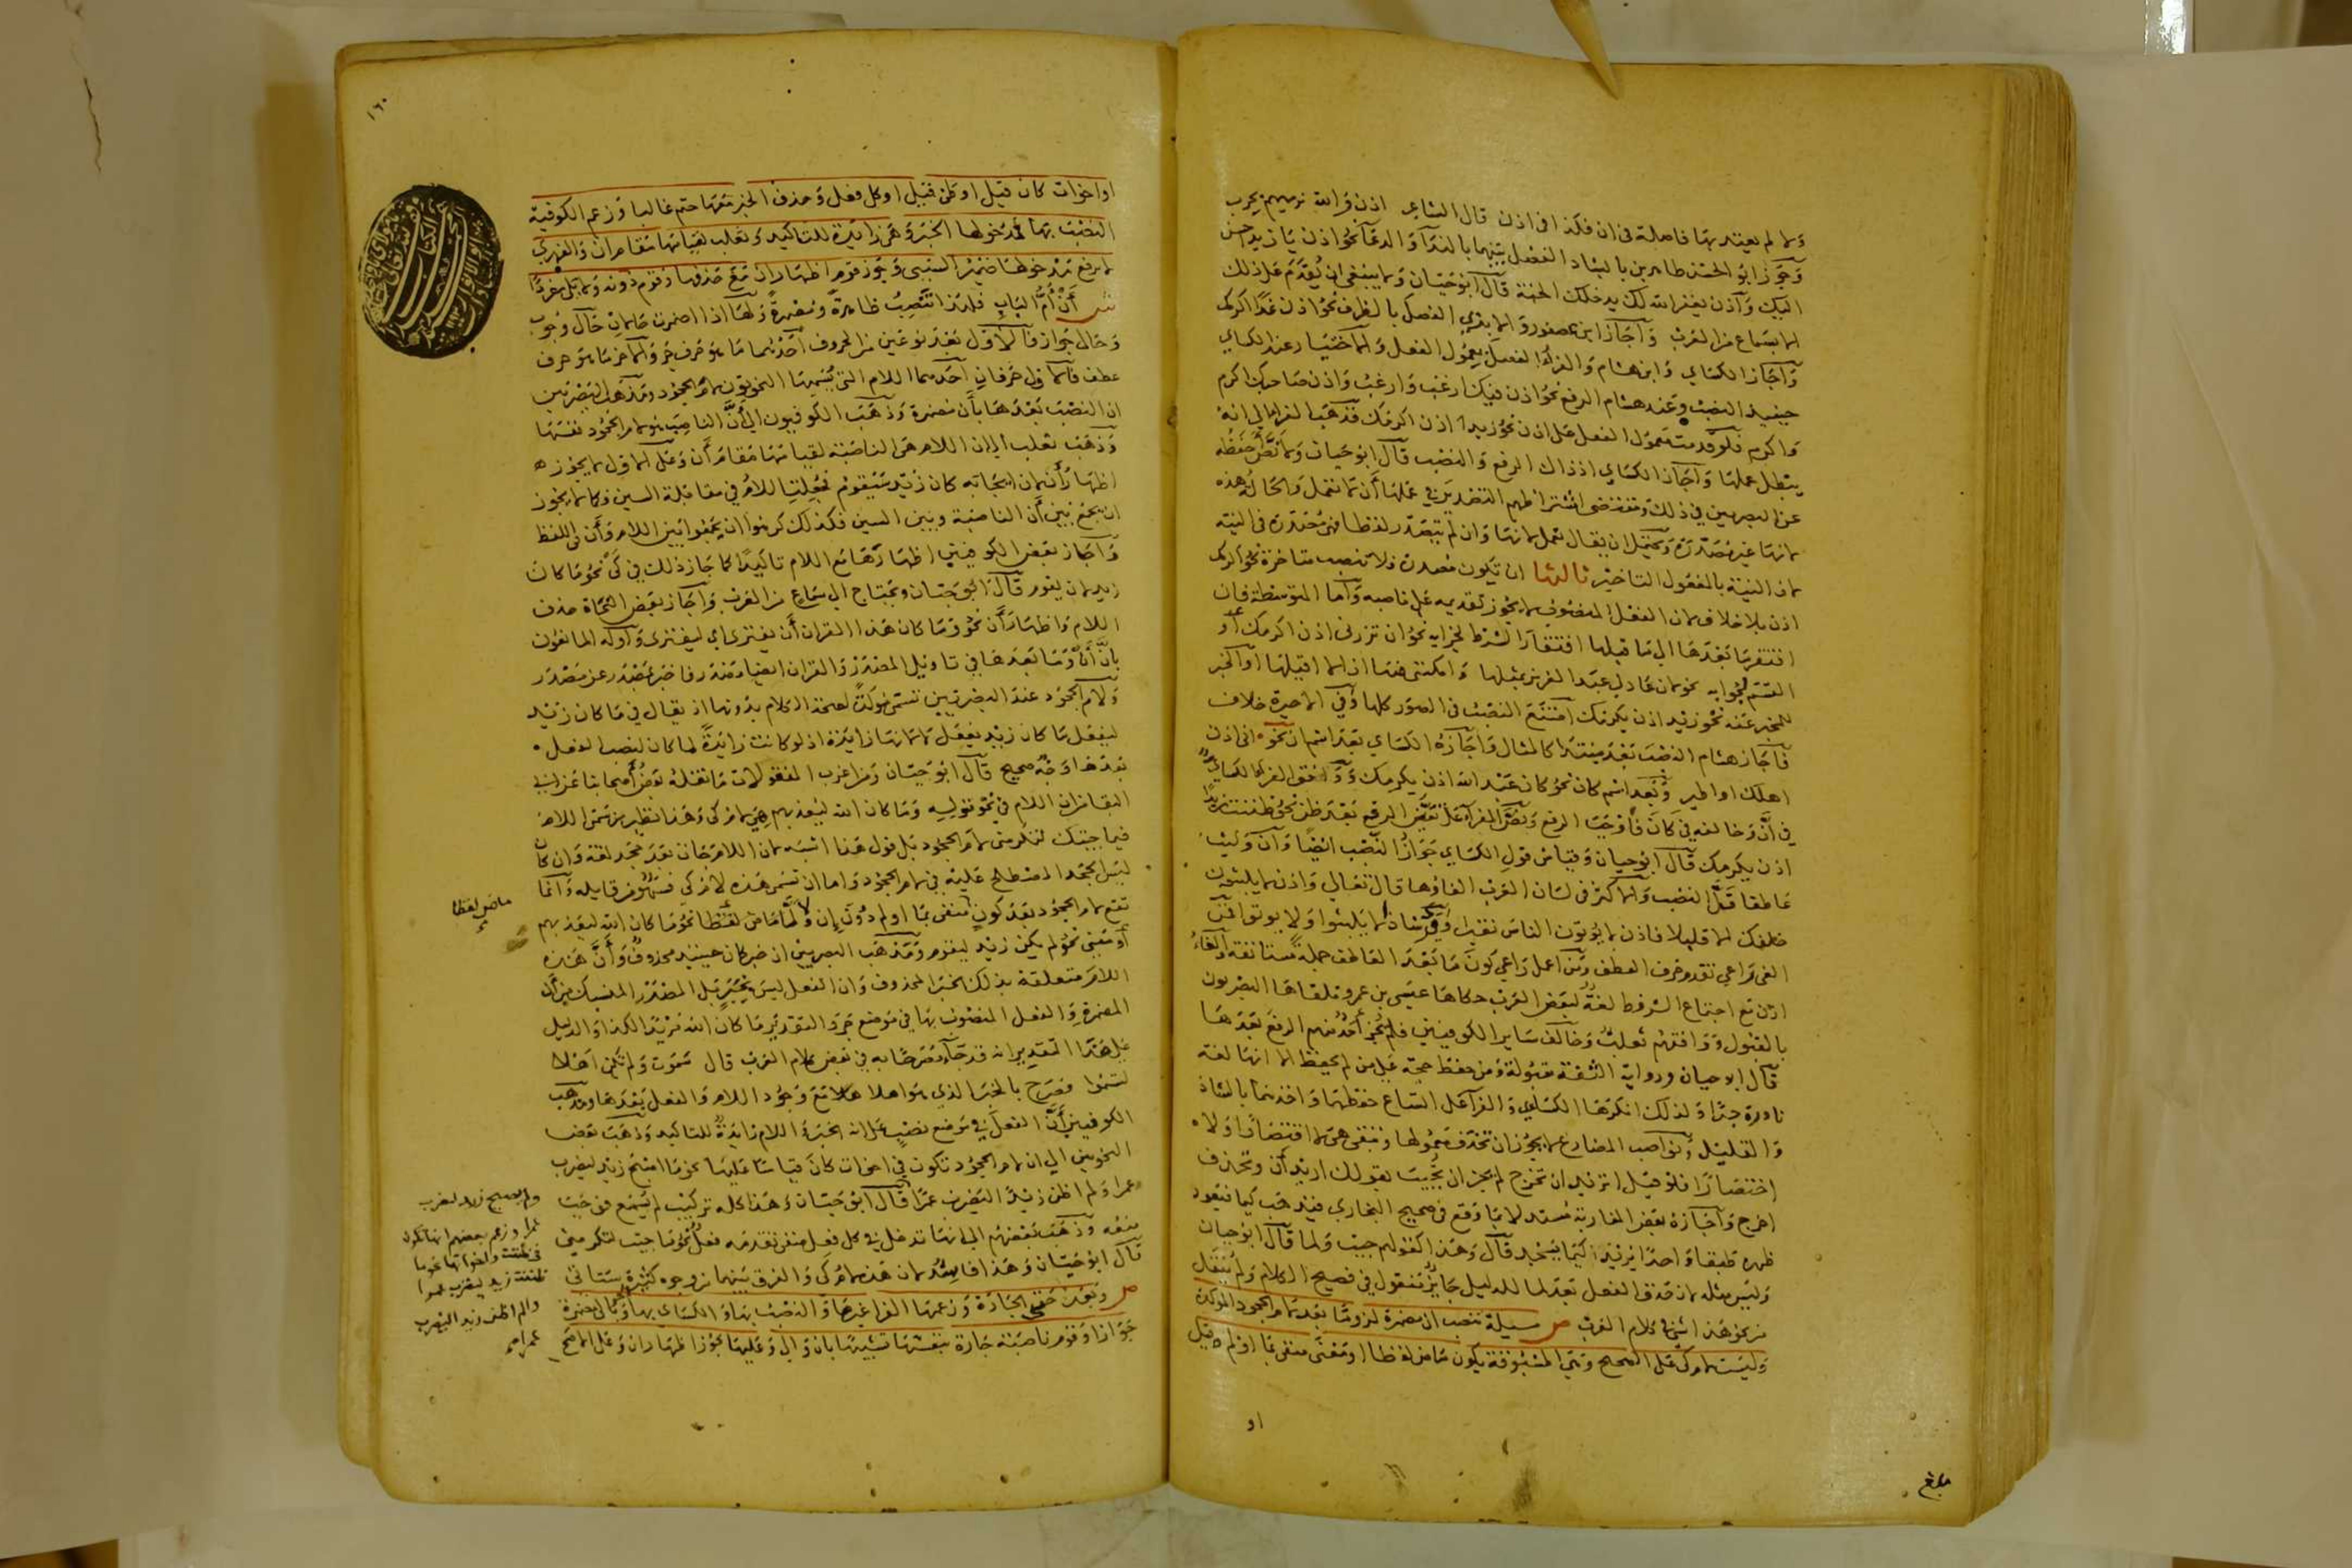 ولا لم يعتد بها فاصلة في ان فكذا في اذن قال الشاعر اذن والله نرميهم بحرب
وجوز ابو الحسن طاهر بن بابشاذ الفصل بينهما بالنداء والدعا نحو اذن يا زيد احسن
اليك واذن يغفر الله لك يدخلك الجنة قال ابو حيان ولا ينبغي ان يقدم على ذلك
الا بسماع من العرب واجاز ابن عصفور والابذي الفصل بالظرف نحو اذن غدا اكرمك
واجاز الكساي وابن هشام والفراء الفصل بمعمول الفعل والاختيار عند الكساي
حينيذ النصب وعند هشام الرفع نحو اذن فيك ارغب وارغب واذن صاحبك اكرم
واكرم فلو قدمت معمول الفعل على اذن نحو زيدا اذن اكرمك فذهب الفرا الى انه
يبطل عملها واجاز الكساي اذ ذاك الرفع والنصب قال ابو حيان ولا نص احفظه
عن البصريين في ذلك ومقتضى اشتراطهم التصدير في عملها ان لا تعمل والحالة هذه
لانها غير مصدرة ويحتمل ان يقال تعمل لانها وان لم تتصدر لفظا فهي مصدرة في النية
لان النية بالمفعول التاخير ثالثها ان تكون مصدرة فلا تنصب متاخرة نحو اكرمك
اذن بلا خلاف لان الفعل المنصوب لا يجوز تقديمه على ناصبه واما المتوسطة فان
افتقر ما بعدها الى ما قبلها افتقار الشرط لجزايه نحو ان تزرني اذن اكرمك او
القسم لجوابه نحو لان عاد لي عبد العزيز بمثلها وامكنني منها اذا لا اقيلها او الخبر
للمخبر عنه نحو زيد اذن يكرمك امتنع النصب في الصور كلها وفي الاخيرة خلاف
فاجاز هشام النصب بعد مبتدا كالمثال واجازه الكساي بعد اسم ان نحو اني اذن
اهلك او اطير وبعد اسم كان نحو كان عبد الله اذن يكرمك ووافق الفرا الكساي
في ان وخالفه في كان فاوجب الرفع ونص الفراء على تعين الرفع بعد ظن نحو ظننت زيدا
اذن يكرمك قال ابو حيان وقياس قول الكساي جواز النصب ايضا وان وليت
عاطفا قل النصب والاكثر في لسان العرب الغاؤها قال تعالى واذن لا يلبثون
خلفك الا قليلا فاذن لا يؤتون الناس نقيرا وقرئ شاذا لا يلبثوا ولا يؤتوا فمن
الغى راعى تقدم حرف العطف ومن اعمل راعى كون ما بعد العاطف جملة مستانفة والغاء
اذن مع اجتماع الشروط لغة لبعض العرب حكاها عيسى بن عمر وتلقاها البصريون
بالقبول ووافقهم ثعلب وخالف ساير الكوفيين فلم يجز احد منهم الرفع بعدها
قال ابو حيان ورواية الثقة مقبولة ومن حفظ حجة على من لم يحفظ الا انها لغة
نادرة جدا ولذلك انكرها الكساي والفرا على اتساع حفظهما واخذهما بالشاذ
والقليل ونواصب المضارع لا يجوز ان تحذف معمولها وتبقى هي لا اقتصارا ولا
اختصارا فلو قيل اتريد ان تخرج لم يجز ان تجيب بقولك اريد ان وتحذف
اخرج واجازه بعض المغاربة مستدلا بما وقع في صحيح البخاري فيذهب كيما فيعود
ظهره طبقا واحدا يريد كيما يسجد قال وهذا كقولهم جيت ولما قال ابو حيان
وليس مثله لان حذف الفعل بعد لما للدليل جايز منقول في فصيح الكلام ولم ينقل
من نحو هذا شي في كلام العرب ص مسيلة تنصب ان مضمرة لزوما بعد لام الجحود الموكدة
وليست لام كي على الصحيح وهي المسبوقة بكون ماض لفظا او معنى منفي بما او لم قيل
او
بلغ
١٦٠
او اخوات كان قيل او ظن قيل او كل فعل وحذف الخبر معها حتم غالبا وزعم الكوفية
النصب بها ومدخولها الخبر وهي زايدة للتاكيد وثعلب لقيامها مقام ان والفهري
لا يرفع مدخولها ضمير السببي وجوز قوم اظهار ان مع حذفها وقوم دونه ولا تلي مفردا
ش ان ام الباب فلهذا تنتصب ظاهرة ومضمرة ولها اذا اضمرت حالان حال وجوب
وحال جواز فالاول بعد نوعين من الحروف احدهما ما هو حرف جر والاخر ما هو حرف
عطف فالاول حرفان احدهما اللام التي يسميها النحويون لام الجحود ومذهب البصريين
ان النصب بعدها بان مضمرة وذهب الكوفيون الى ان الناصب هو لام الجحود نفسها
وذهب ثعلب الى ان اللام هي الناصبة لقيامها مقام ان وعلى الاول لا يجوز
اظهار ان لان ايجابه كان زيد سيقوم فجعلت اللام في مقابلة السين فكما لا يجوز
ان يجمع بين ان الناصبة وبين السين فكذلك كرهوا ان يجمعوا بين اللام وان في اللفظ
واجاز بعض الكوفيين اظهارها مع اللام تاكيدا كما جاز ذلك في كي نحو ما كان
زيد لان يقوم قال ابو حيان ويحتاج الى سماع من العرب واجاز بعض النحاة حذف
اللام واظهار ان نحو وما كان هذا القران ان يفترى اي ليفترى واوله المانعون
بان ان وما بعدها في تاويل المصدر والقران ايضا مصدر فاخبر بمصدر عن مصدر
ولام الجحود عند البصريين تسمى موكدة لصحة الكلام بدونها اذ يقال في ما كان زيد
ليفعل ما كان زيد يفعل لا لانها زايدة اذ لو كانت زايدة لما كان لنصب الفعل
بعدها وجه صحيح قال ابو حيان ومن اغرب المنقولات ما نقله بعض اصحابنا عن ابي
البقا من ان اللام في نحو قوله وما كان الله ليعذبهم هي لام كي وهذا نظير من سمى اللام
فيما جيتك لتكرمني لام الجحود بل قول هذا اشبه لان اللام جات بعد جحد لغة وان كان
ليس الجحد المصطلح عليه في لام الجحود واما ان تسمى هذه لام كي فسهو من قايله وانما
تقع لام الجحود بعد كون منفي بما او لم دون ان ولما ماض لفظا نحو ما كان الله ليعذبهم
او معنى نحو لم يكن زيد ليقوم ومذهب البصريين ان خبر كان حينيذ محذوف وان هذه
اللام متعلقة بذلك الخبر المحذوف وان الفعل ليس بخبر بل المصدر المنسبك من ان
المضمرة والفعل المنصوب بها في موضع جر والتقدير ما كان الله مريدا لكذا والدليل
على هذا التقدير انه قد جاء مصرحا به في بعض كلام العرب قال سموت ولم تكن اهلا
لتسمو فصرح بالخبر الذي هو اهلا مع وجود اللام والفعل بعدها ومذهب
الكوفيين ان الفعل في موضع نصب على انه الخبر واللام زايدة للتاكيد وذهب بعض
النحويين الى ان لام الجحود تكون في اخوات كان قياسا عليها نحو ما اصبح زيد ليضرب
عمرا ولم اظن زيدا ليضرب عمرا قال ابو حيان وهذا كله تركيب لم يسمع فوجب
منعه وذهب بعضهم الى انها تدخل في كل فعل منفي تقدمه فعل نحو ما جيت لتكرمني
قال ابو حيان وهذا فاسد لان هذه لام كي والفرق بينهما من وجوه كثيرة ستاتي
ص وبعد حتى الجارة وزعمها الفرا غيرها والنصب بها والكساي بها وبالى مضمرة
جوازا وقوم ناصبة جارة بنفسها تشبيها بان والى وعليهما يجوز اظهار ان وعلى الاصح
ماض لفظا
ولم يصبح زيد ليضرب
عمرا وزعم بعضهم انها تكون
في ظننت واخواتها نحو ما
ظننت زيدا ليضرب عمرا
ولم اظن زيدا ليضرب
عمرا صح